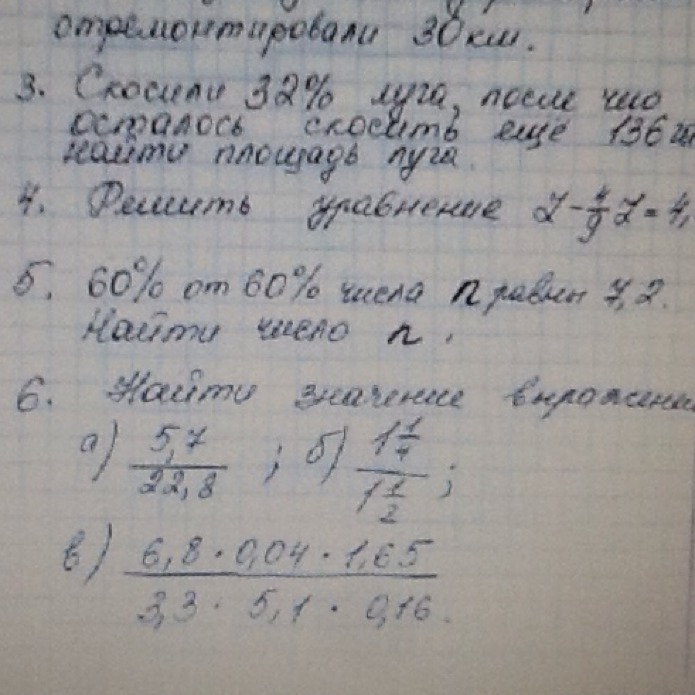 отремонтировали 30 км.
3. Скосили 32% луга, после чио
осталось скосить ещё 136
найти площадь луга.
4. Решить уравнение Z - 4/9 Z = 4,
5. 60% от 60% числа n равны 7,2.
Найти число n.
6. Найти значение выражени
а) 5,7/22,8 ; б) 1 1/4 / 1 1/2 ;
в) 6,8 · 0,04 · 1,65
3,3 · 5,1 · 0,16.